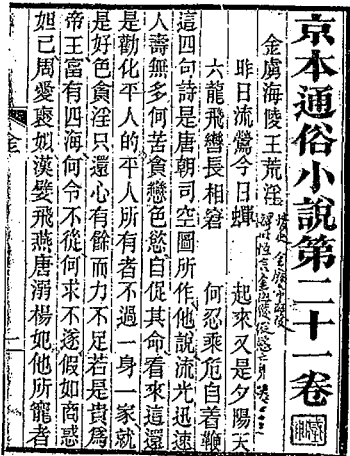 京本通俗小說第二十一卷
金虜海陵王荒淫
昨日流鶯今日蟬　起來又是夕陽天
六龍飛轡長相窘　何忍乘危自着鞭
這四句詩是唐朝司空圖所作他說流光迅速
人壽無多何苦貪戀色慾自促其命看來這還
是勸化平人的平人所有者不過一身一家就
是好色貪淫只還心有餘而力不足若是貴爲
帝王富有四海何令不從何求不遂假如商惑
妲己周愛褒姒漢嬖飛燕唐溺楊妃他所寵者